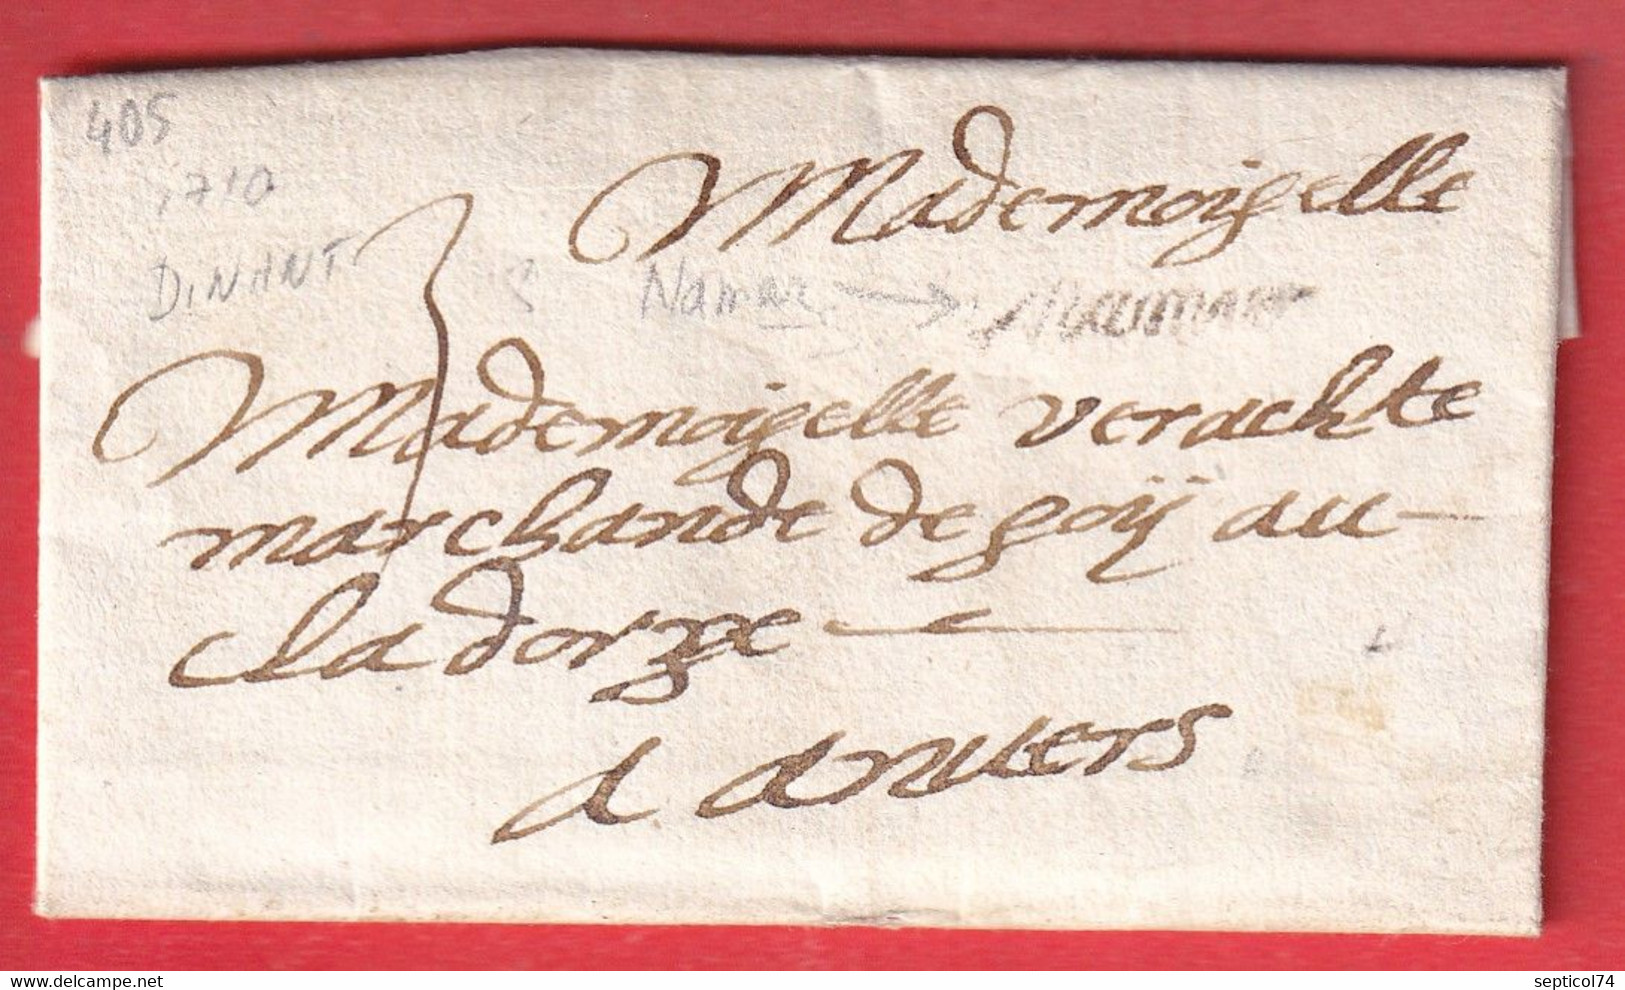 405
1710
DINANT
3
Mademoiselle
Namur
Mademoiselle verachte
marchande de soij au
cladorge
a anvers
delcampe.net
septicol74